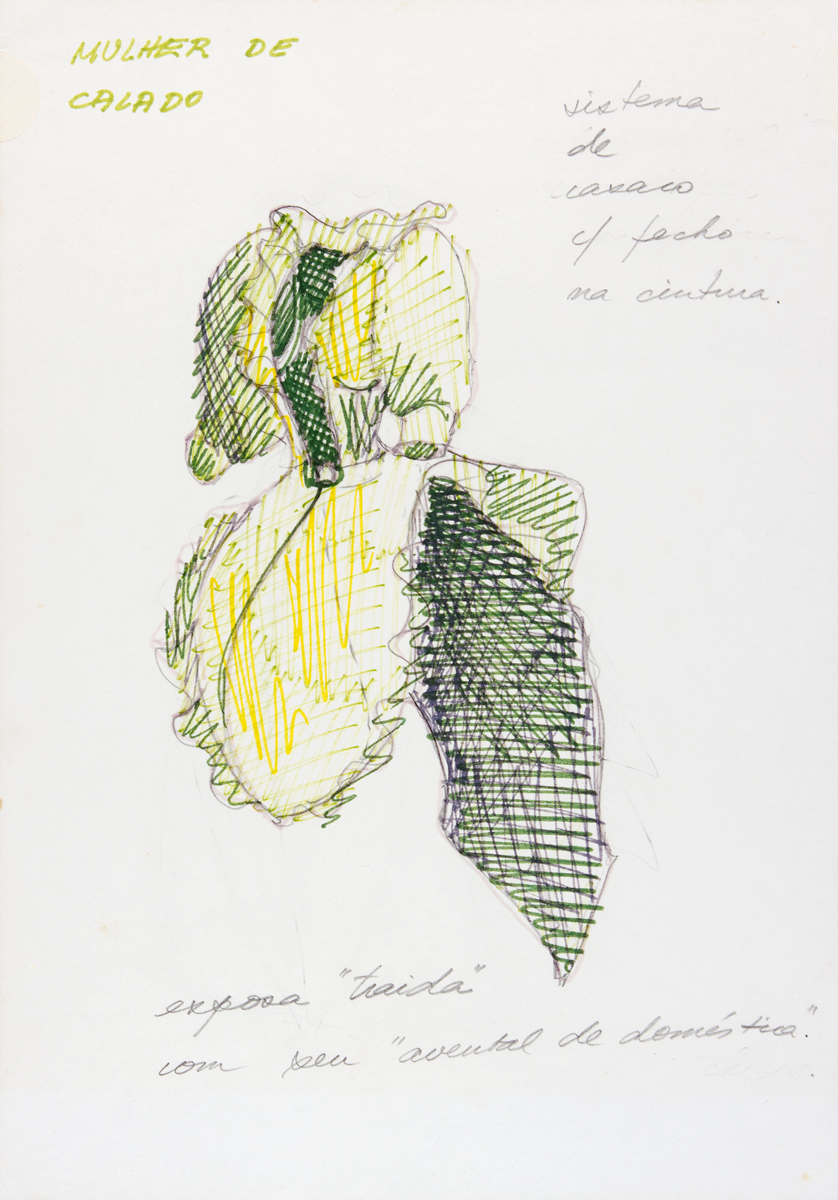 MULHER DE
CALADO
sistema
de
casaco
c/ fecho
na cintura.
esposa "traida"
com seu "avental de doméstica".